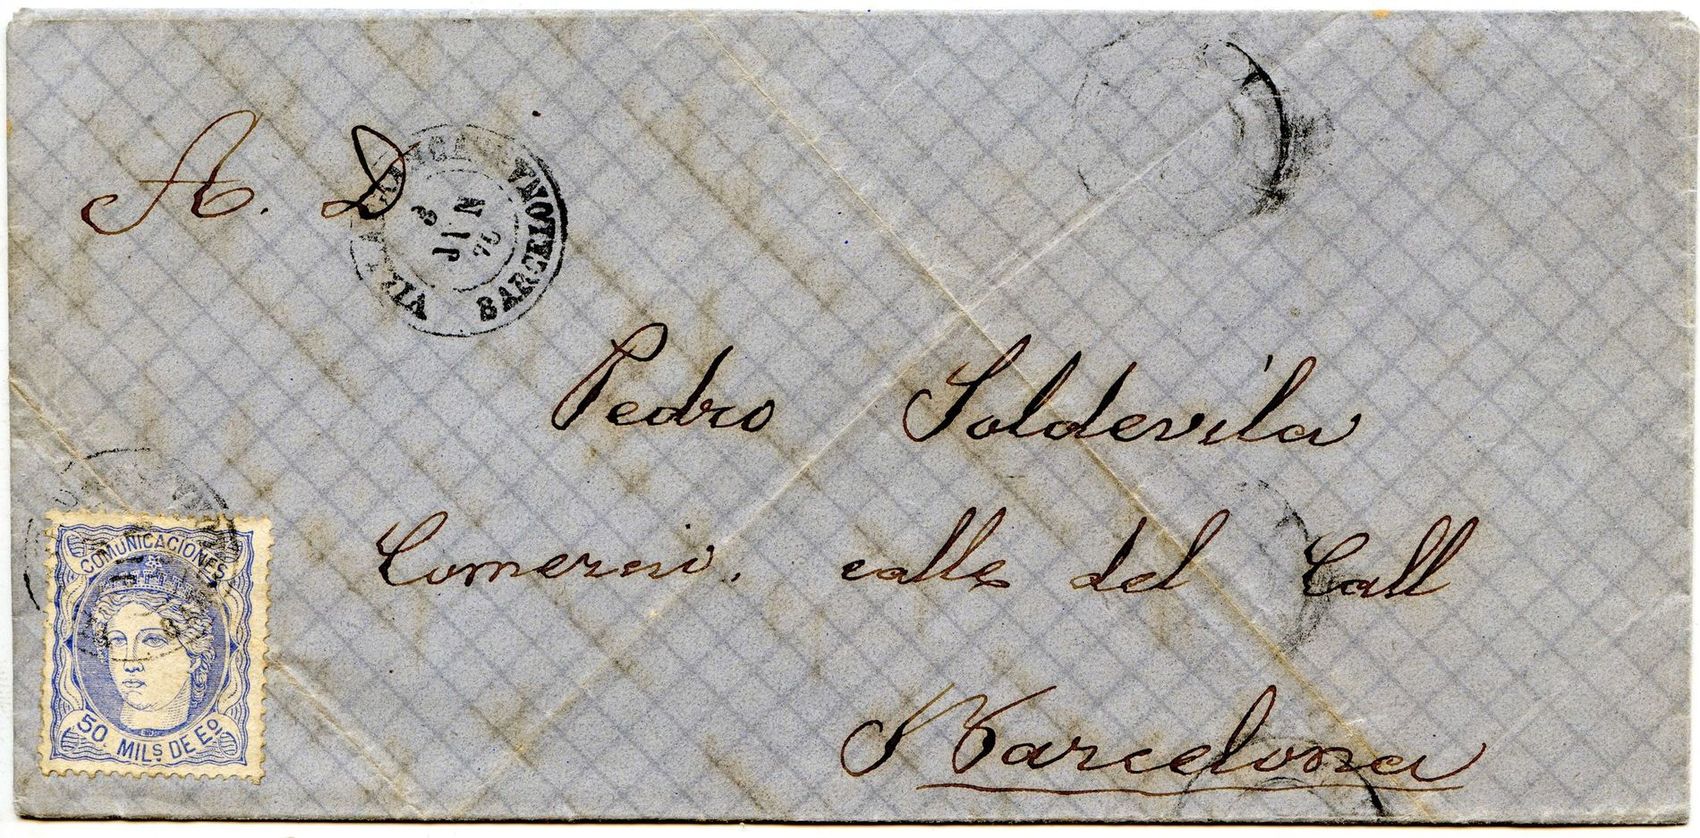 A. D.
BARCELONA
3
JUN
70
Pedro Soldevila
Comercio. calle del Call
Barcelona
COMUNICACIONES
50 MILS DE Eº